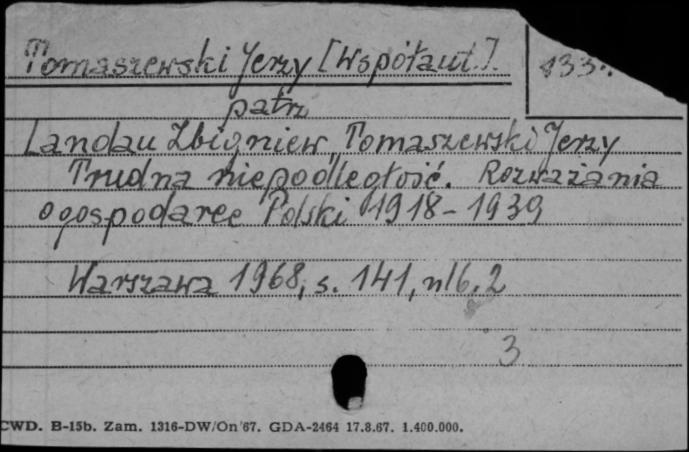 Tomaszewski Jerzy [Współaut.].
133.
patrz
Landau Zbigniew, Tomaszewski Jerzy
Trudna niepodległość. Rozważania
o gospodarce Polski 1918-1939
Warszawa 1968, s. 141, nlb. 2
3
CWD. B-15b. Zam. 1316-DW/On'67. GDA-2464 17.8.67. 1.400.000.